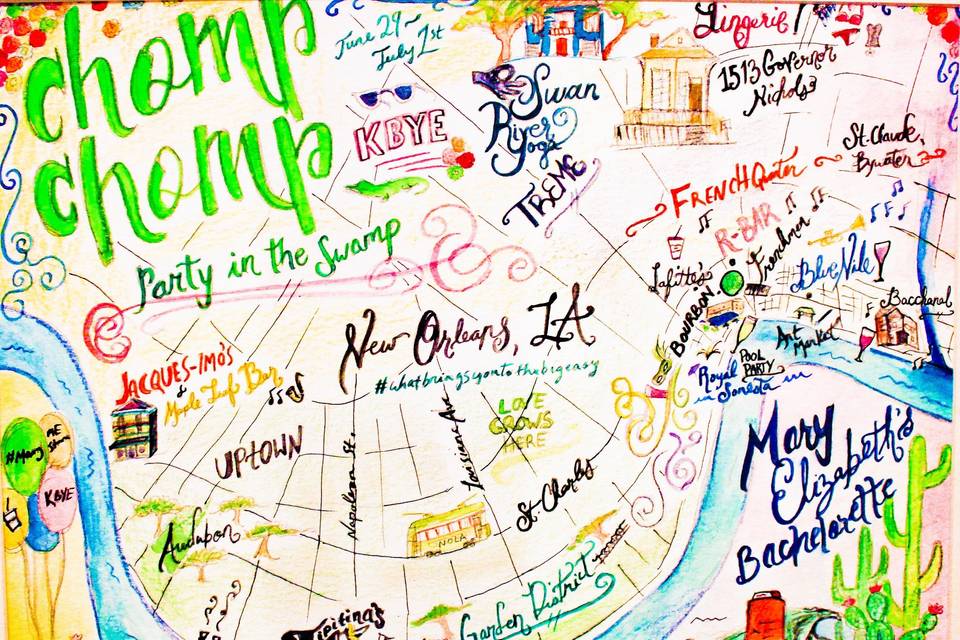 chomp
chomp
June 29 ~
July 1st
Lingerie!
1513 Governor
Nichols
KBYE
Swan
River
Yoga
TREMÉ
St. Claude,
Bywater
FRENCH Quarter
R-BAR
Frenchmen
Lafitte's
Blue Nile
Bacchanal
BOURBON
Art
Market
Royal
POOL
PARTY
in Sonesta
Party in the Swamp
New Orleans, LA
#whatbringsyoutothebigeasy
JACQUES-IMO'S
&
Maple Leaf Bar
LOVE
GROWS
HERE
UPTOWN
Napoleon St.
Louisiana Ave
St. Charles
Audubon
NOLA
#Mary
KBYE
Garden District
Tipitina's
Mary
Elizabeth's
Bachelorette